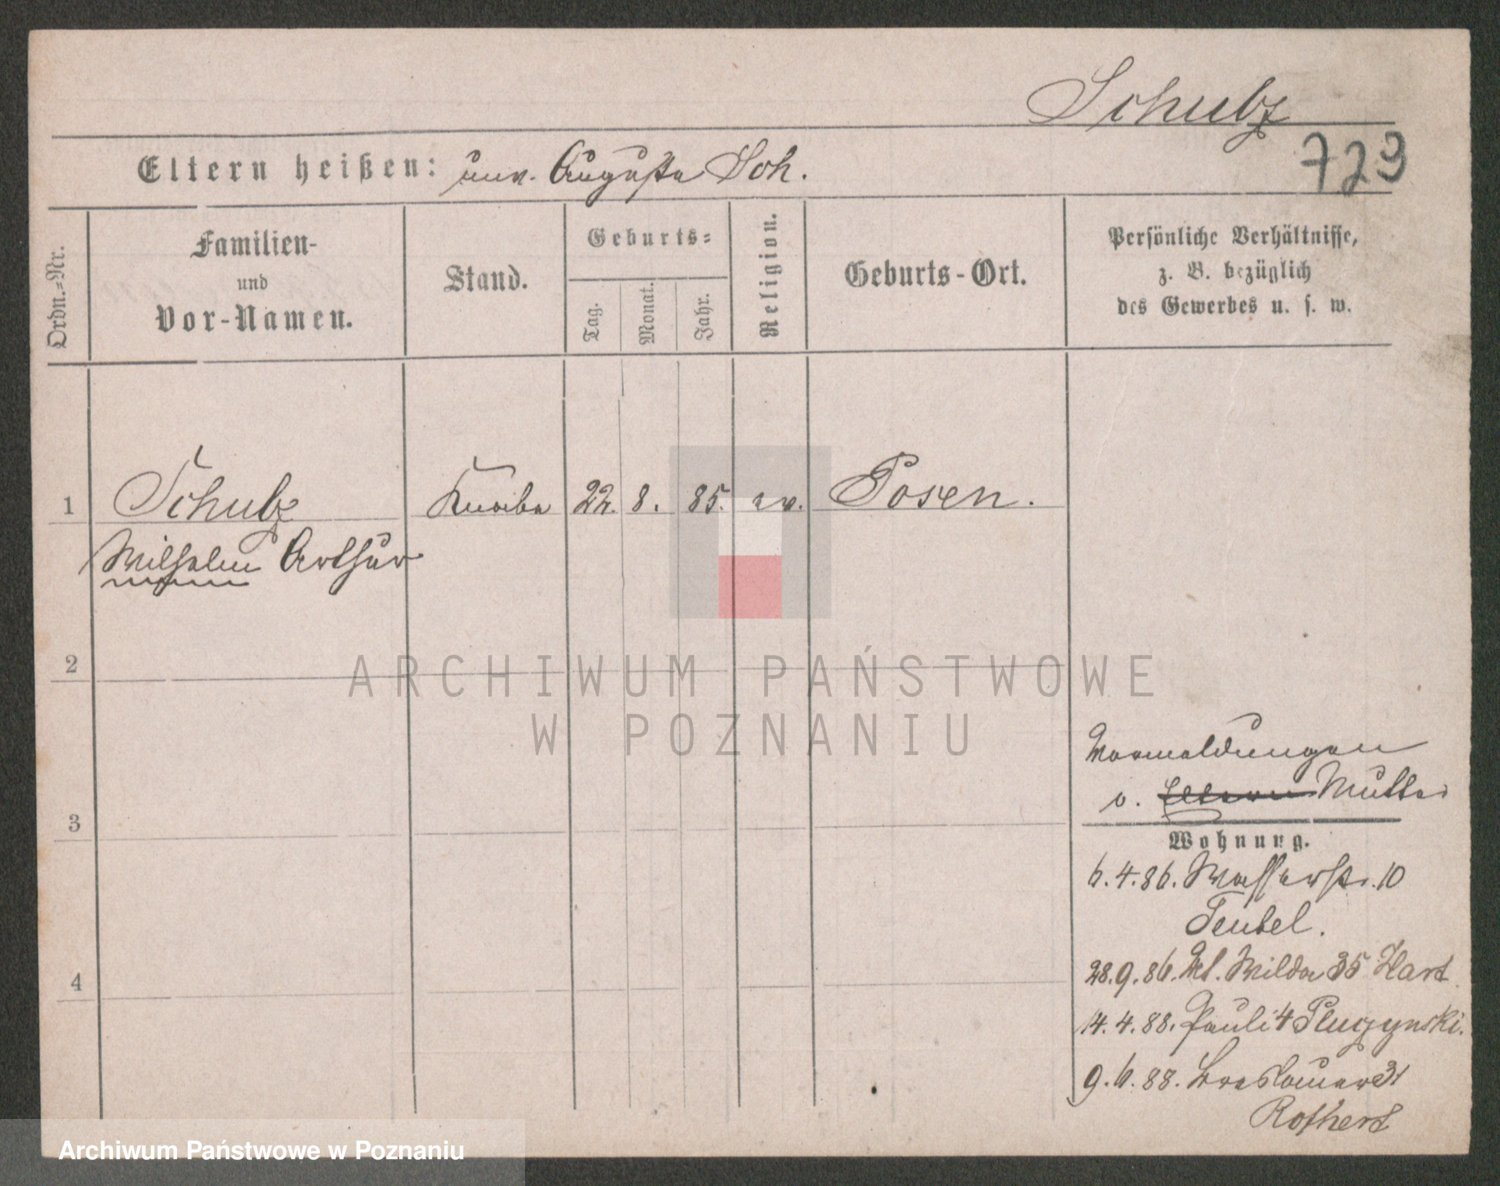 Schulz
729
Eltern heißen: unv. Auguste Sch.
Ordn.-Nr.
Familien-
und
Vor-Namen.
Stand.
Geburts-
Tag.
Monat.
Jahr.
Religion.
Geburts-Ort.
Persönliche Verhältnisse,
z. B. bezüglich
des Gewerbes u. s. w.
1 Schulz Knabe 22. 8. 85. ev. Posen.
Wilhelm Arthur
2
ARCHIWUM PAŃSTWOWE
W POZNANIU
3
4
Vormeldungen
v. Eltern Mutter
Wohnung.
6.4.86. Wasserstr. 10
Teubel.
28.9.86. Wilda 35 Hart
14.4.88. Pauli 4 Pluczynski.
9.6.88. Breslauer 31
Rothert
Archiwum Państwowe w Poznaniu